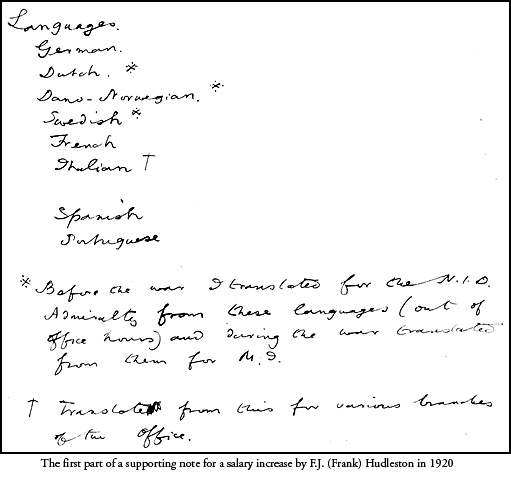 Languages.
German.
Dutch. *
Dano-Norwegian. *
Swedish *
French
Italian †
Spanish
Portuguese
* Before the war I translated for the N.I.D.
Admiralty from these languages (out of
office hours) and during the war translated
from them for M.I.
† Translate from this for various branches
of the Office.
The first part of a supporting note for a salary increase by F.J. (Frank) Hudleston in 1920